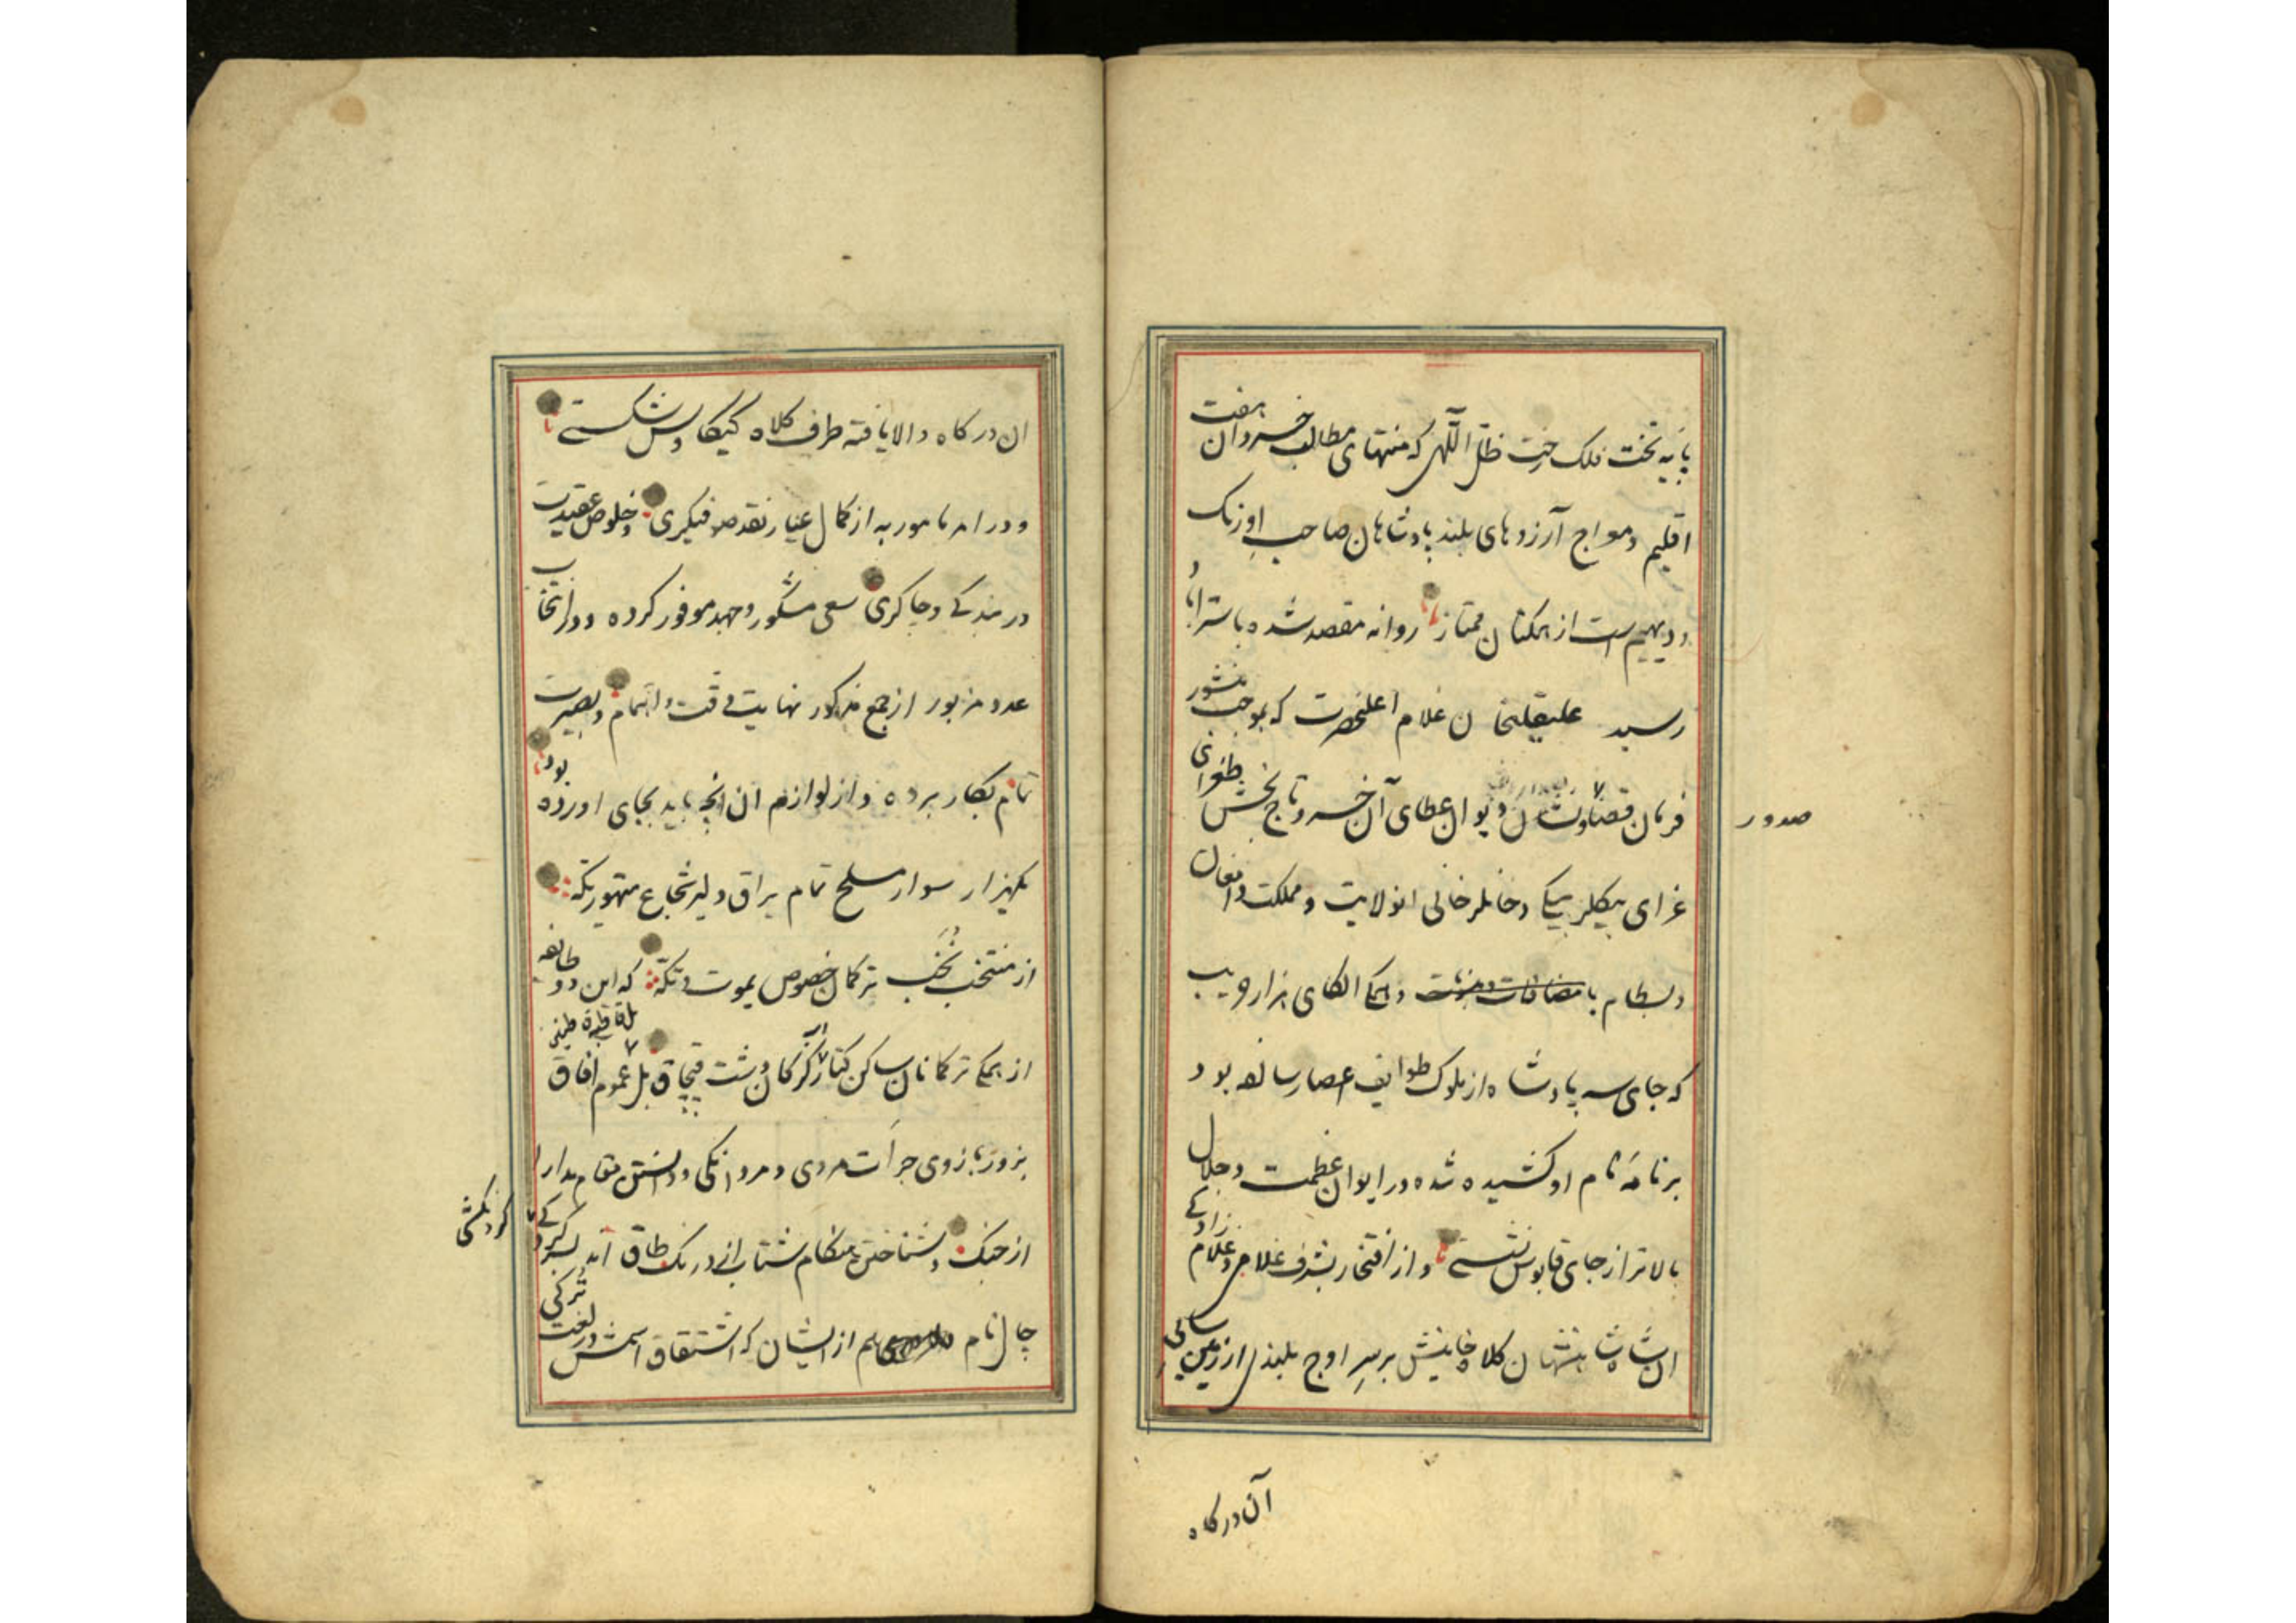 پایه تخت فلک رخت ظلّ اللّهی که منتهای مطالب خسروان هفت
اقلیم و مواج آرزوهای بلند پادشاهان صاحب اورنک
و دیهیم است از همکنان ممتاز روانه مقصد شده باستراباد
رسید علیقلیخان غلام اعلیحضرت که بموجب منشور
فرمان قضا نشان دیوان عطای آن خسرو تاج بخش طغرای
صدور
غرای بیکلربیکی و خانلرخانی انولایت و مملکت دامغان
و بسطام با مضافات و همکی الکای هزارجریب
که جای سه پادشاه از ملوک طوایف اعصار سالفه بود
برنامه نام او کشیده شده در ایوان عظمت و جلال
بالاتر از جای قابوس نشسته و از افتخار بشرف غلامی و غلام زادکی
ان شاه شاهنشهان کلاه خانیش بر سر اوج بلندی از زمین سائی
آن درکاه
ان درکاه والا یافته طرف کلاه کیکاوس شکستی
و در امر مامور به از کمال عیار نقد صوفیکری و خلوص عقیدت
در بندکی و چاکری سعی مشکور و جهد موفور کرده و در انتخاب
عدد مزبور از جمع مذکور نهایت دقت و اهتمام و بصیرت
تمام بکار برده و از لوازم ان انچه باید بجای اورده بود
یکهزار سوار مسلح تمام یراق دلیر شجاع متهور یکه
از منتخب نخب ترکمان خصوص یموت و تکه که این دو طایفه
از همکی ترکمانان ساکن کنار اب کرکان و دشت قپچاق بل عموم افاق
بزور بازوی جرات مردی و مردانکی و دانستن مقام مدارا
از جنک و شناختن هنکام شتاب از درنک طاق اند بسرکردکی
چال نام هم از ایشان که اشتقاق اسمش در لغت ترکی